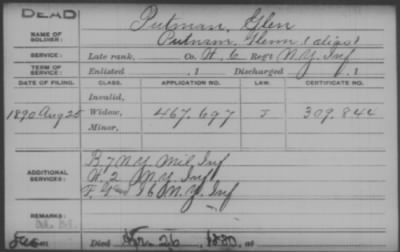 DEAD
NAME OF SOLDIER: Putman, Glen
Putnam, Glenn (alias)
SERVICE: Late rank, Co. H, 6 Reg't N.Y. Inf
TERM OF SERVICE: Enlisted , 1 Discharged , 1
DATE OF FILING. CLASS. APPLICATION NO. LAW. CERTIFICATE NO.
Invalid,
1890 Aug 25 Widow, 467.697 J 309.844
Minor,
ADDITIONAL SERVICES: B 7 N.Y. Mil Inf
H. 2 N.Y. Inf
F. 16 N.Y. Inf
REMARKS:
Died Apr. 26, 1880, at